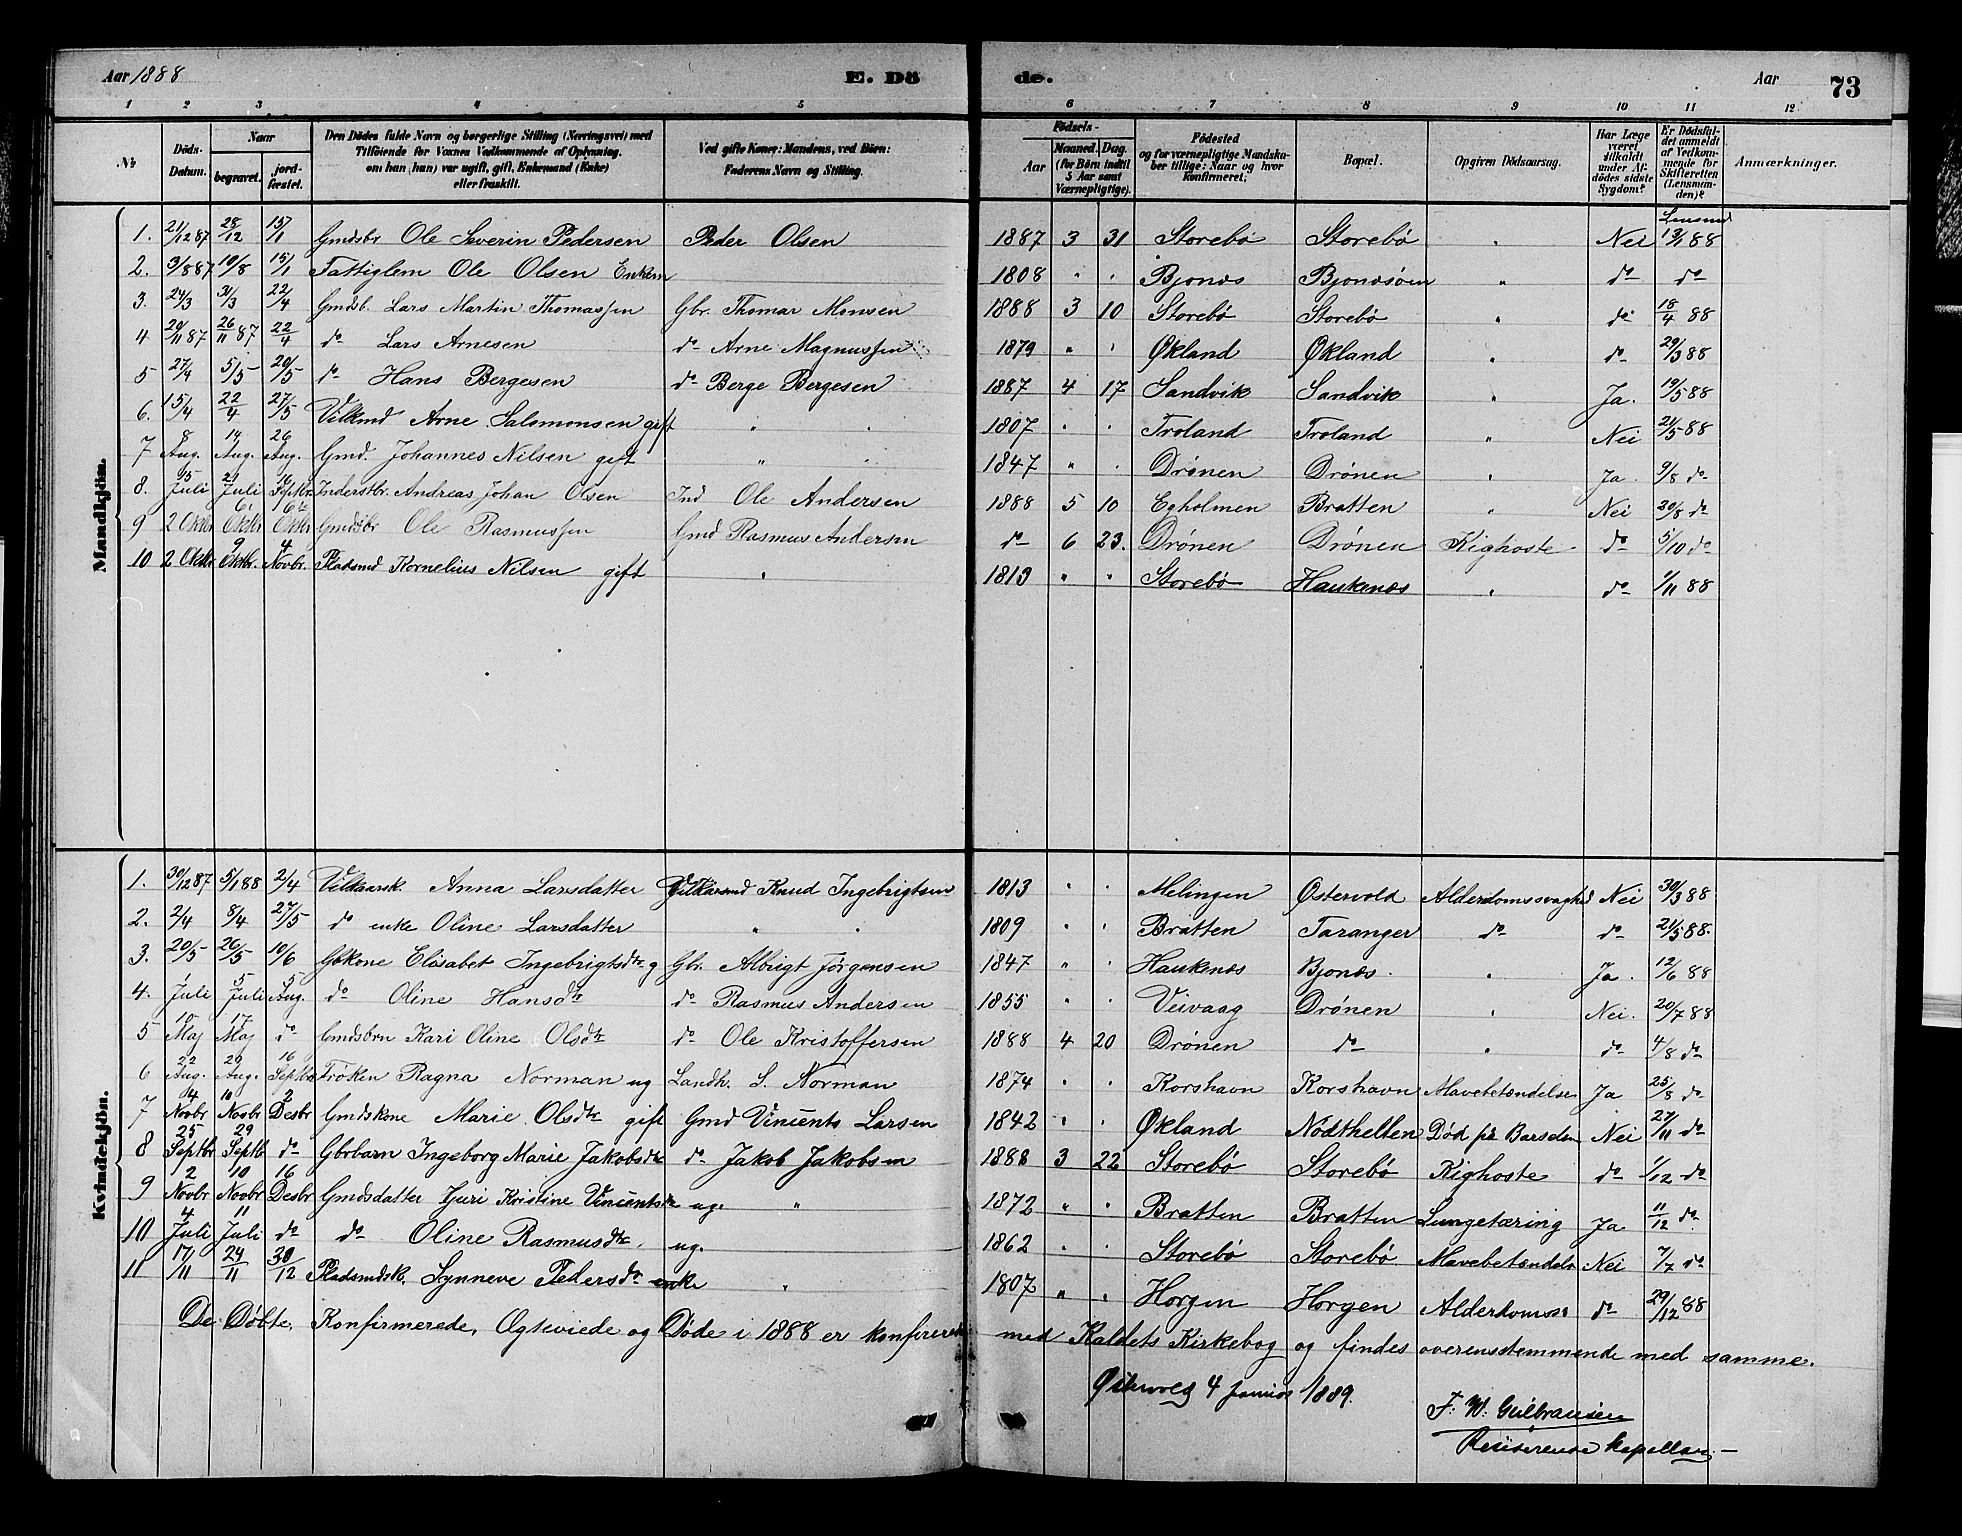 Aar 1888 E. Dö de. Aar 73
1 2 3 4 5 6 7 8 9 10 11 12
No. Döds-Datum. Naar begravet. jord-fæstet. Den Dødes fulde Navn og borgerlige Stilling (Næringsvei) med Tilføiende for Voxnes Vedkommende af Oplysning, om han (hun) var ugift, gift, Enkemand (Enke) eller fraskilt. Ved gifte Koner: Mandens, ved Börn: Faderens Navn og Stilling. Födsels- Aar Maaned. Dag. (for Börn indtil 5 Aar samt Værnepligtige). Födested og for værnepligtige Mandska-ber tillige: Naar og hvor konfirmeret. Bopæl. Opgiven Dödsaarsag. Har Læge været tilkaldt under Af-dödes sidste Sygdom? Er Dödsfal-det anmeldt af Vedkom-mende for Skifteretten (Lensman-den)? Anmærkninger.
Mandkjön.
1. 21/12 87 28/12 15/1 Gmdsbr Ole Severin Pedersen Peder Olsen 1887 3 31 Storebö Storebö " Nei Lensmd 13/1 88
2. 3/8 87 10/8 15/1 Fattiglem Ole Olsen Enkem 1808 " " Bjonæs Bjonæsöen " do do
3. 24/3 31/3 22/4 Gmdsb. Lars Martin Thomassen Gbr. Thomas Monsen 1888 3 10 Storebö Storebö " do 18/4 88
4 20/11 87 26/11 87 22/4 do Lars Arnesen do Arne Magnussen 1879 " " Økland Økland " do 29/3 88
5 27/4 5/5 20/5 do Hans Bergesen do Berge Bergesen 1887 4 17 Sandvik Sandvik " Ja. 19/5 88
6. 15/4 22/4 27/5 Vilkmd Arne Salomonsen gift " " 1807 " " Troland Troland " Nei 21/5 88
7 8 Aug. 14 Aug. 26 Aug. Gmd. Johannes Nilsen gift " " 1847 " " Drönen Drönen " Ja 9/8 do
8. 15 Juli 21 Juli 16 Septbr Inderstbr. Andreas Johan Olsen Ind Ole Andersen 1888 5 10 Egholmen Bratten " Nei 20/8 do
9 2 Oktbr 6 Oktbr 16 Oktbr Gmdsbr Ole Rasmussen Gmd Rasmus Andersen do 6 23. Drönen Drönen Kighoste do 5/10 do
10 2 Oktbr 9 Oktbr. 4 Novbr. Pladsmd Kornelius Nilsen gift " 1813 " " Storebö Haukenæs " do 1/11 88
Kvindekjön.
1. 30/12 87 5/1 88 2/4 Vilkaarsk. Anna Larsdatter Vilkaarsmd Knud Ingebrigtsen 1813 " " Melingen Østervold Alderdomssvaghed Nei 30/3 88
2. 2/4 8/4 27/5 do enke Oline Larsdatter " " 1809 " " Bratten Taranger do do 21/5 88.
3. 20/5 26/5 10/6 Gbkone Elisabet Ingebrigtsdtr g Gbr. Albrigt Jörgensen 1847 " " Haukenæs Bjonæs. " Ja. 12/6 88
4. Juli 5 Juli 5 Aug. do Oline Hansdtr do Rasmus Andersen 1855 " " Veivaag Drönen " Nei. 20/7 88
5 10 Maj 17 Maj do Gmdsbrn Kari Oline Olsdtr do Ole Kristoffersen 1888 4 20 Drönen do " do 4/8 do
6 22 Aug. 29 Aug. 16 Septbr Fröken Ragna Norman ug Landh. S. Norman 1874 " " Korshavn Korshavn Mavebetændelse Ja 25/8 do
7 4 Novbr 10 Novbr 2 Desbr Gmdskone Marie Olsdtr gift Gmd Vincents Larsen 1842 " " Økland Nödthelten Död på Barselen Nei 27/11 do
8 25 Septbr 29 Septb do Gbrbarn Ingeborg Marie Jakobsdtr do Jakob Jakobsen 1888 3 22 Storebö Storebö Kighoste do 1/12 do
9 2 Novbr 10 Novbr 16 Desbr Gmdsdatter Juri Kristine Vincentsdtr ug. " 1872 " " Bratten Bratten Lungetæring Ja 11/12 do
10 4 Juli 11 Juli do do Oline Rasmusdtr. ug. 1862 " " Storebö Storebö Mavebetændels Nei 7/7 do
11 17/11 24/11 30/12 Pladsmdsk. Synneve Pedersdtr enke " 1807 " " Horgen Horgen Alderdomss do 29/12 88
De Döbte, Konfirmerede, Ogteviede og Döde i 1888 er konfererede med Kaldets Kirkebog og findes overensstemmende med samme.
4 Januar 1889.
F. W. Gulbransen
Residerende kapellan.